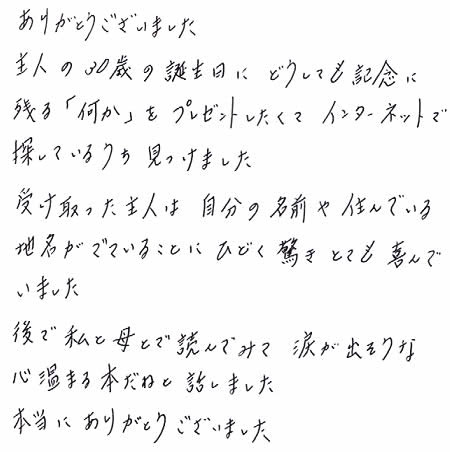 ありがとうございました
主人の30歳の誕生日に どうしても記念に
残る「何か」を プレゼントしたくて インターネットで
探しているうち 見つけました
受け取った主人は 自分の名前や住んでいる
地名がでていることに ひどく驚き とても喜んで
いました
後で私と母とで読んでみて 涙が出そうな
心温まる本だねと 話しました
本当に ありがとうございました